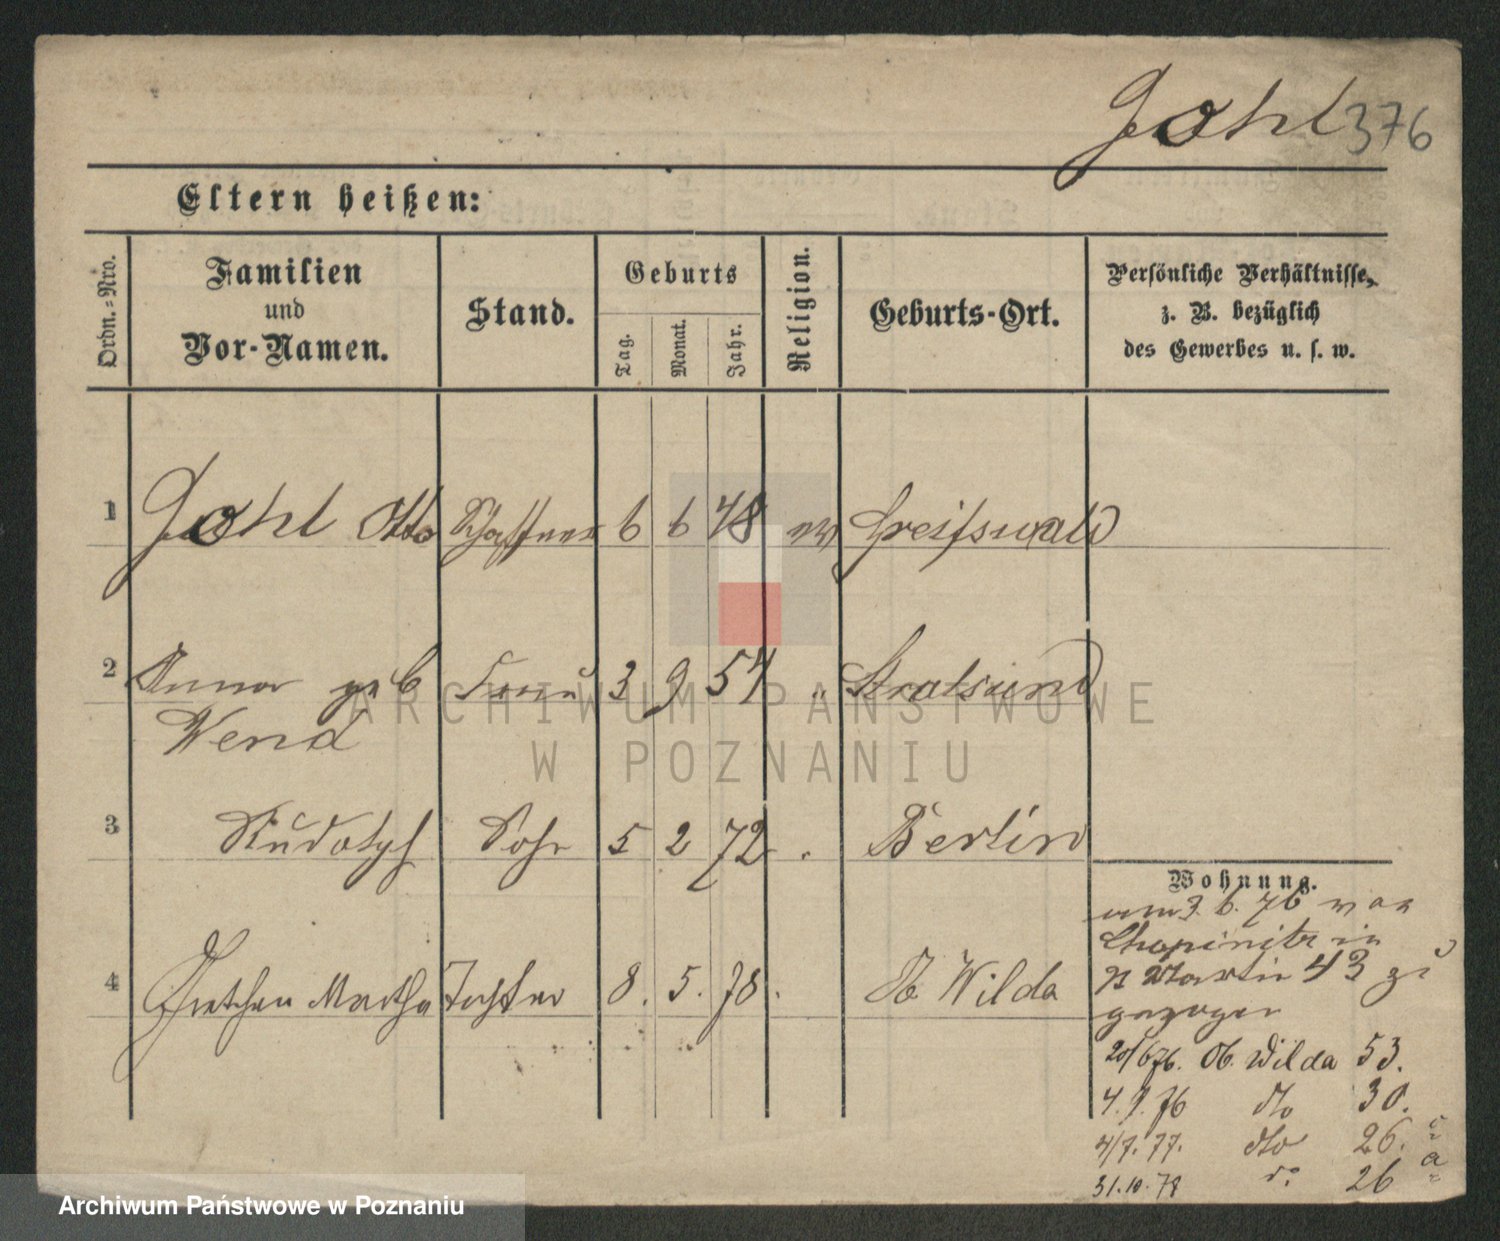 Gohl 376
Eltern heißen:
Ordn.-Nro.
Familien
und
Vor-Namen.
Stand.
Geburts
Tag.
Monat.
Jahr.
Religion.
Geburts-Ort.
Persönliche Verhältnisse,
z. B. bezüglich
des Gewerbes u. s. w.
1 Gohl Otto Schaffner 6 6 48 ev Greifswald
2 Anna geb Frau 3 9 54 " Stralsund
Wend
3 Rudolph Sohn 5 2 72 " Berlin
4 Gretchen Martha Tochter 8. 5. 78. Ob Wilda
Wohnung.
am 3. 6. 76 von
in
St Martin 43 zu
gezogen
20/6 76. Ob. Wilda 53.
4. 9. 76 dto 30.
4/7. 77. dto 26.
31.10.78 do 26
ARCHIWUM PAŃSTWOWE
W POZNANIU
Archiwum Państwowe w Poznaniu